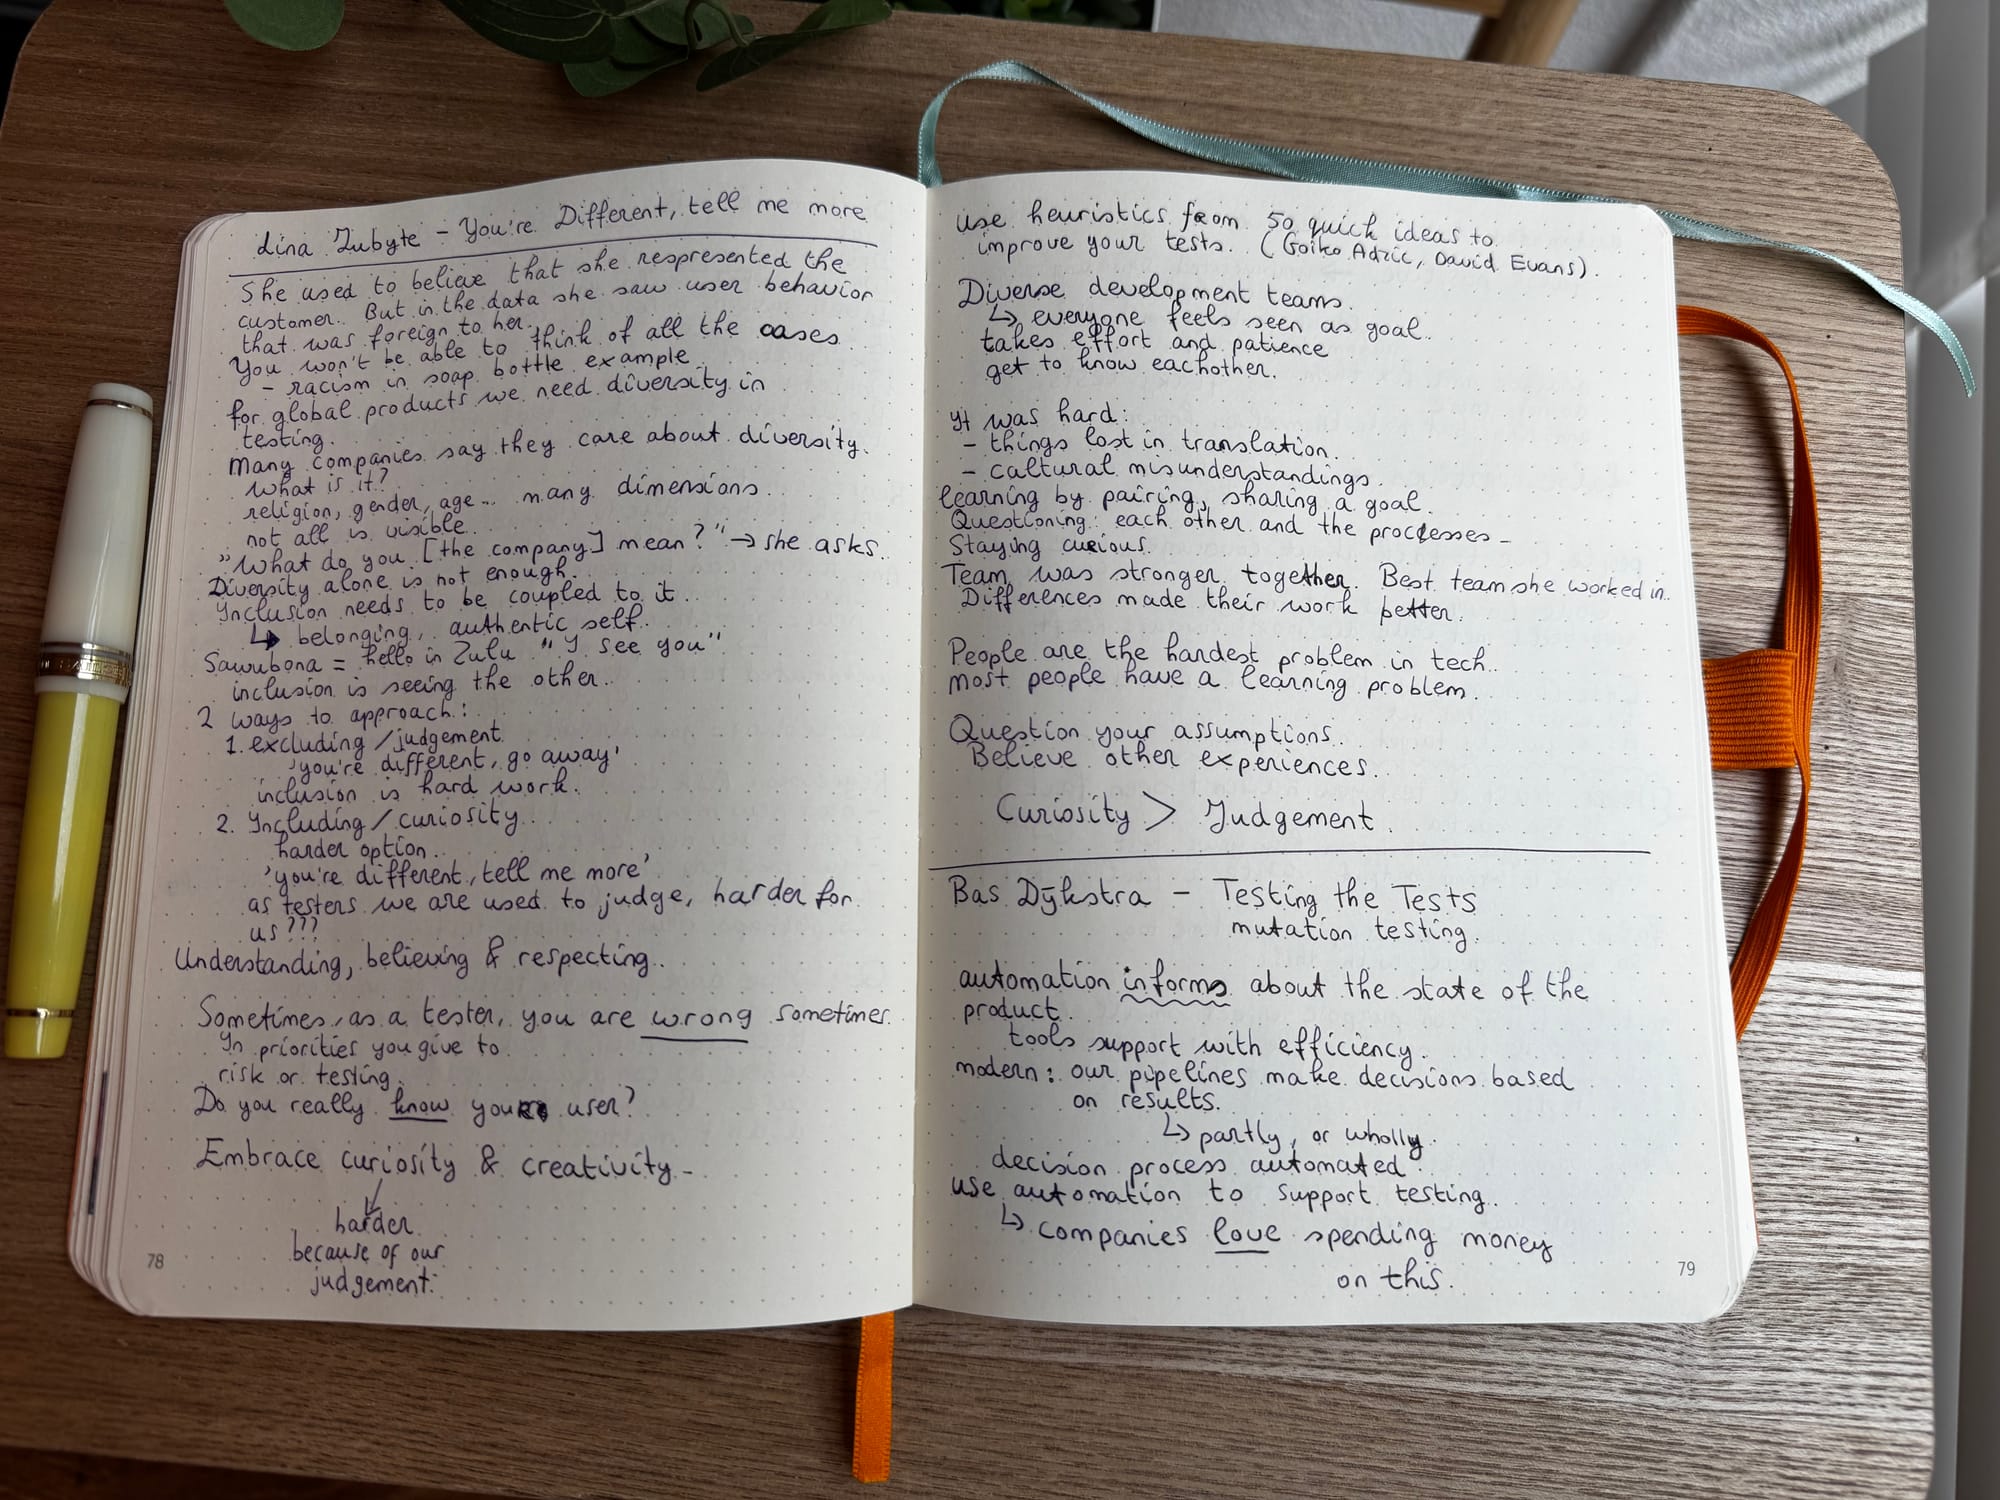 Lina Zubyte - You're Different, tell me more
She used to believe that she respresented the
customer. But in the data she saw user behavior
that was foreign to her.
You won't be able to think of all the cases.
- racism in soap bottle example
for global products we need diversity in
testing.
Many companies say they care about diversity.
What is it?
religion, gender, age... many dimensions.
not all is visible.
"What do you [the company] mean?" → she asks.
Diversity alone is not enough.
Inclusion needs to be coupled to it.
↳ belonging, authentic self.
Sawubona = hello in Zulu "I see you"
inclusion is seeing the other.
2 ways to approach:
1. excluding / judgement
'you're different, go away'
inclusion is hard work.
2. Including / curiosity
harder option.
'you're different, tell me more'
as testers we are used to judge, harder for
us???
Understanding, believing & respecting.
Sometimes, as a tester, you are wrong sometimes.
In priorities you give to
risk or testing.
Do you really know your user?
Embrace curiosity & creativity -
harder
because of our
judgement.
78
use heuristics from 50 quick ideas to
improve your tests. (Goiko Adzic, David Evans).
Diverse development teams.
↳ everyone feels seen as goal.
takes effort and patience
get to know eachother.
It was hard:
- things lost in translation.
- cultural misunderstandings.
learning by pairing, sharing a goal.
Questioning: each other and the proccesses -
Staying curious.
Team was stronger together. Best team she worked in.
Differences made their work better.
People are the hardest problem in tech.
most people have a learning problem.
Question your assumptions.
Believe other experiences.
Curiosity > Judgement.
Bas Dijkstra - Testing the Tests
mutation testing.
automation informs about the state of the
product.
tools support with efficiency.
modern: our pipelines make decisions based
on results.
↳ partly, or wholly.
decision process automated.
use automation to support testing.
↳ companies love spending money
on this.
79